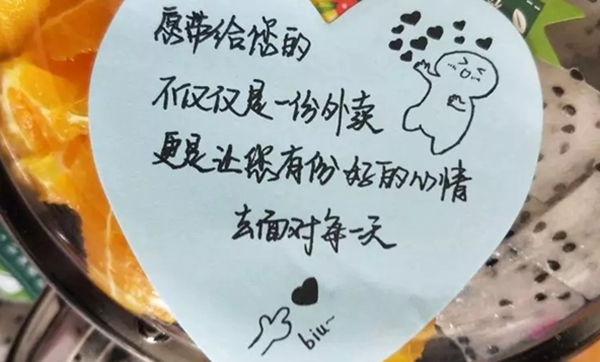 愿带给您的
不仅仅是一份外卖
更是让您有份好的心情
去面对每一天
biu~